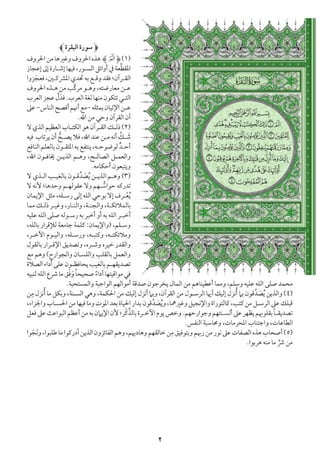 ﴿ سورة البقرة ﴾
(١) ﴿الٓمٓ﴾ هذه الحروف وغيرها من الحروف
المقطَّعة في أوائل السور، فيها إشارة إلى إعجاز
القرآن؛ فقد وقع به تحدي المشركين، فعجزوا
عن معارضته، وهو مركَّب من هذه الحروف
التي تتكون منها لغة العرب. فدَلَّ عجز العرب
عن الإتيان بمثله -مع أنهم أفصح الناس- على
أن القرآن وحي من الله.
(٢) ذلك القرآن هو الكتاب العظيم الذي لا
شَكَّ أنه من عند الله، فلا يصح أن يرتاب فيه
أحد لوضوحه، ينتفع به المتقون بالعلم النافع
والعمل الصالح، وهم الذين يخافون الله،
ويتبعون أحكامه.
(٣) وهم الذين يُصَدِّقون بالغيب الذي لا
تدركه حواسُّهم ولا عقولهم وحدها؛ لأنه لا
يُعْرف إلا بوحي الله إلى رسله، مثل الإيمان
بالملائكة، والجنة، والنار، وغير ذلك مما
أخبر الله به أو أخبر به رسوله صلى الله عليه
وسلم، (والإيمان: كلمة جامعة للإقرار بالله،
وملائكته، وكتبه، ورسله، واليوم الآخر،
والقدر خيره وشره، وتصديق الإقرار بالقول
والعمل بالقلب واللسان والجوارح) وهم مع
تصديقهم بالغيب يحافظون على أداء الصلاة
في مواقيتها أداءً صحيحًا وَفْق ما شرع الله لنبيه
محمد صلى الله عليه وسلم، ومما أعطيناهم من المال يخرجون صدقة أموالهم الواجبة والمستحبة.
(٤) والذين يُصَدِّقون بما أُنزل إليك أيها الرسول من القرآن، وبما أنزل إليك من الحكمة، وهي السنة، وبكل ما أُنزل مِن
قبلك على الرسل من كتب، كالتوراة والإنجيل وغيرهما، ويُصَدِّقون بدار الحياة بعد الموت وما فيها من الحساب والجزاء،
تصديقًا بقلوبهم يظهر على ألسنتهم وجوارحهم. وخص يوم الآخرة بالذِّكر؛ لأن الإيمان به من أعظم البواعث على فعل
الطاعات، واجتناب المحرمات، ومحاسبة النفس.
(٥) أصحاب هذه الصفات على نور من ربهم وبتوفيق مِن خالقهم وهاديهم، وهم الفائزون الذين أدركوا ما طلبوا، ونَجَوا
من شرِّ ما منه هربوا.
٢